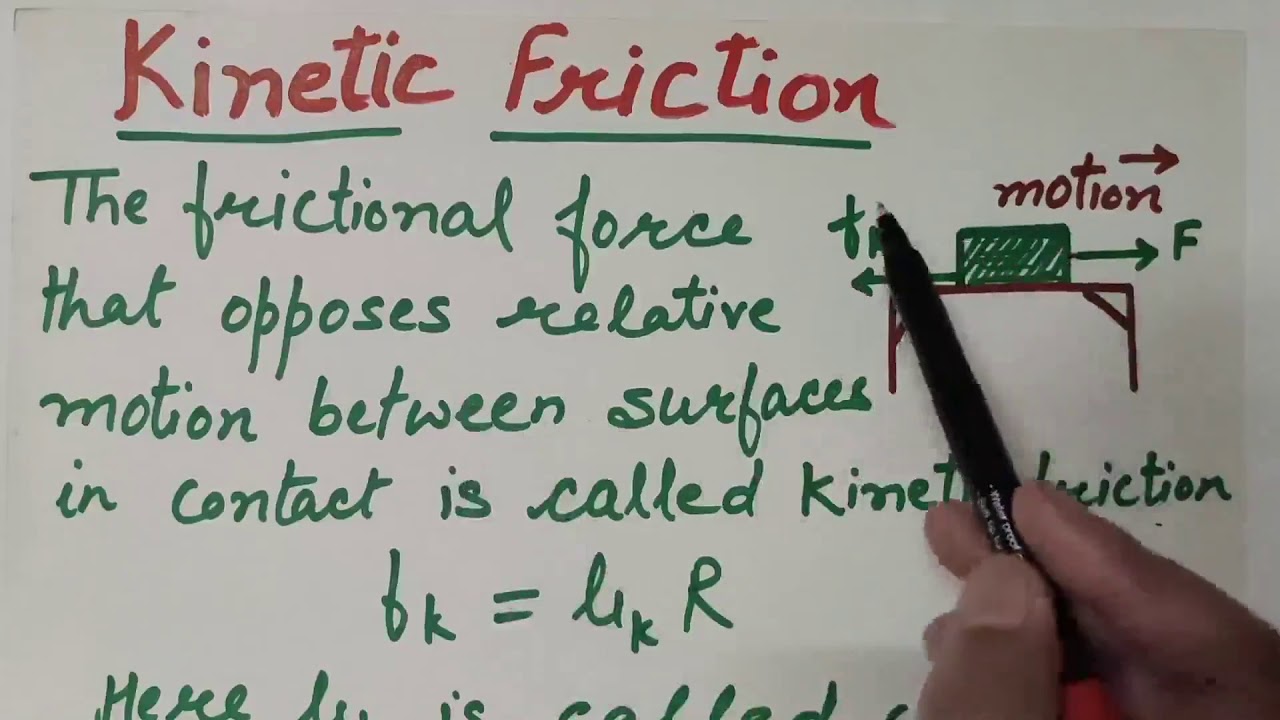 Kinetic Friction
The frictional force
that opposes relative
motion between surfaces
in contact is called Kinetic friction
f_k = μ_k R
Here μ is called
motion
f_k
F
Water proof